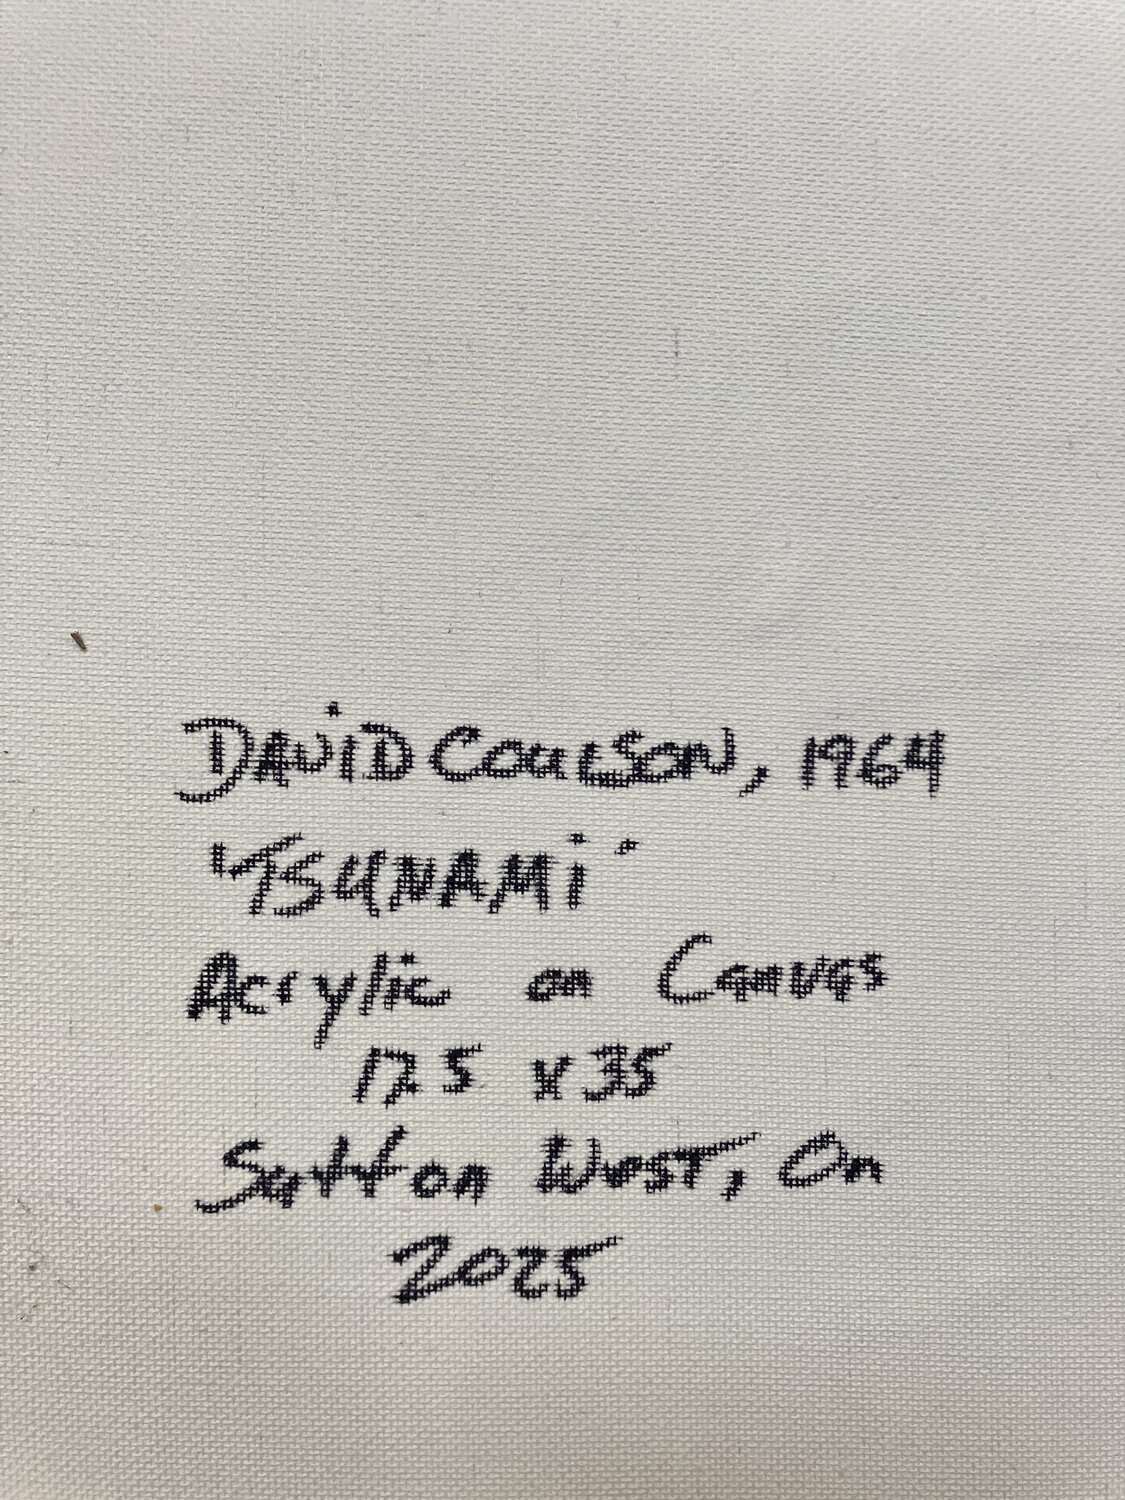 DAViD COULSON, 1964
"TSUNAMi"
Acrylic on Canvas
17.5 x 35
Sutton West, On
2025